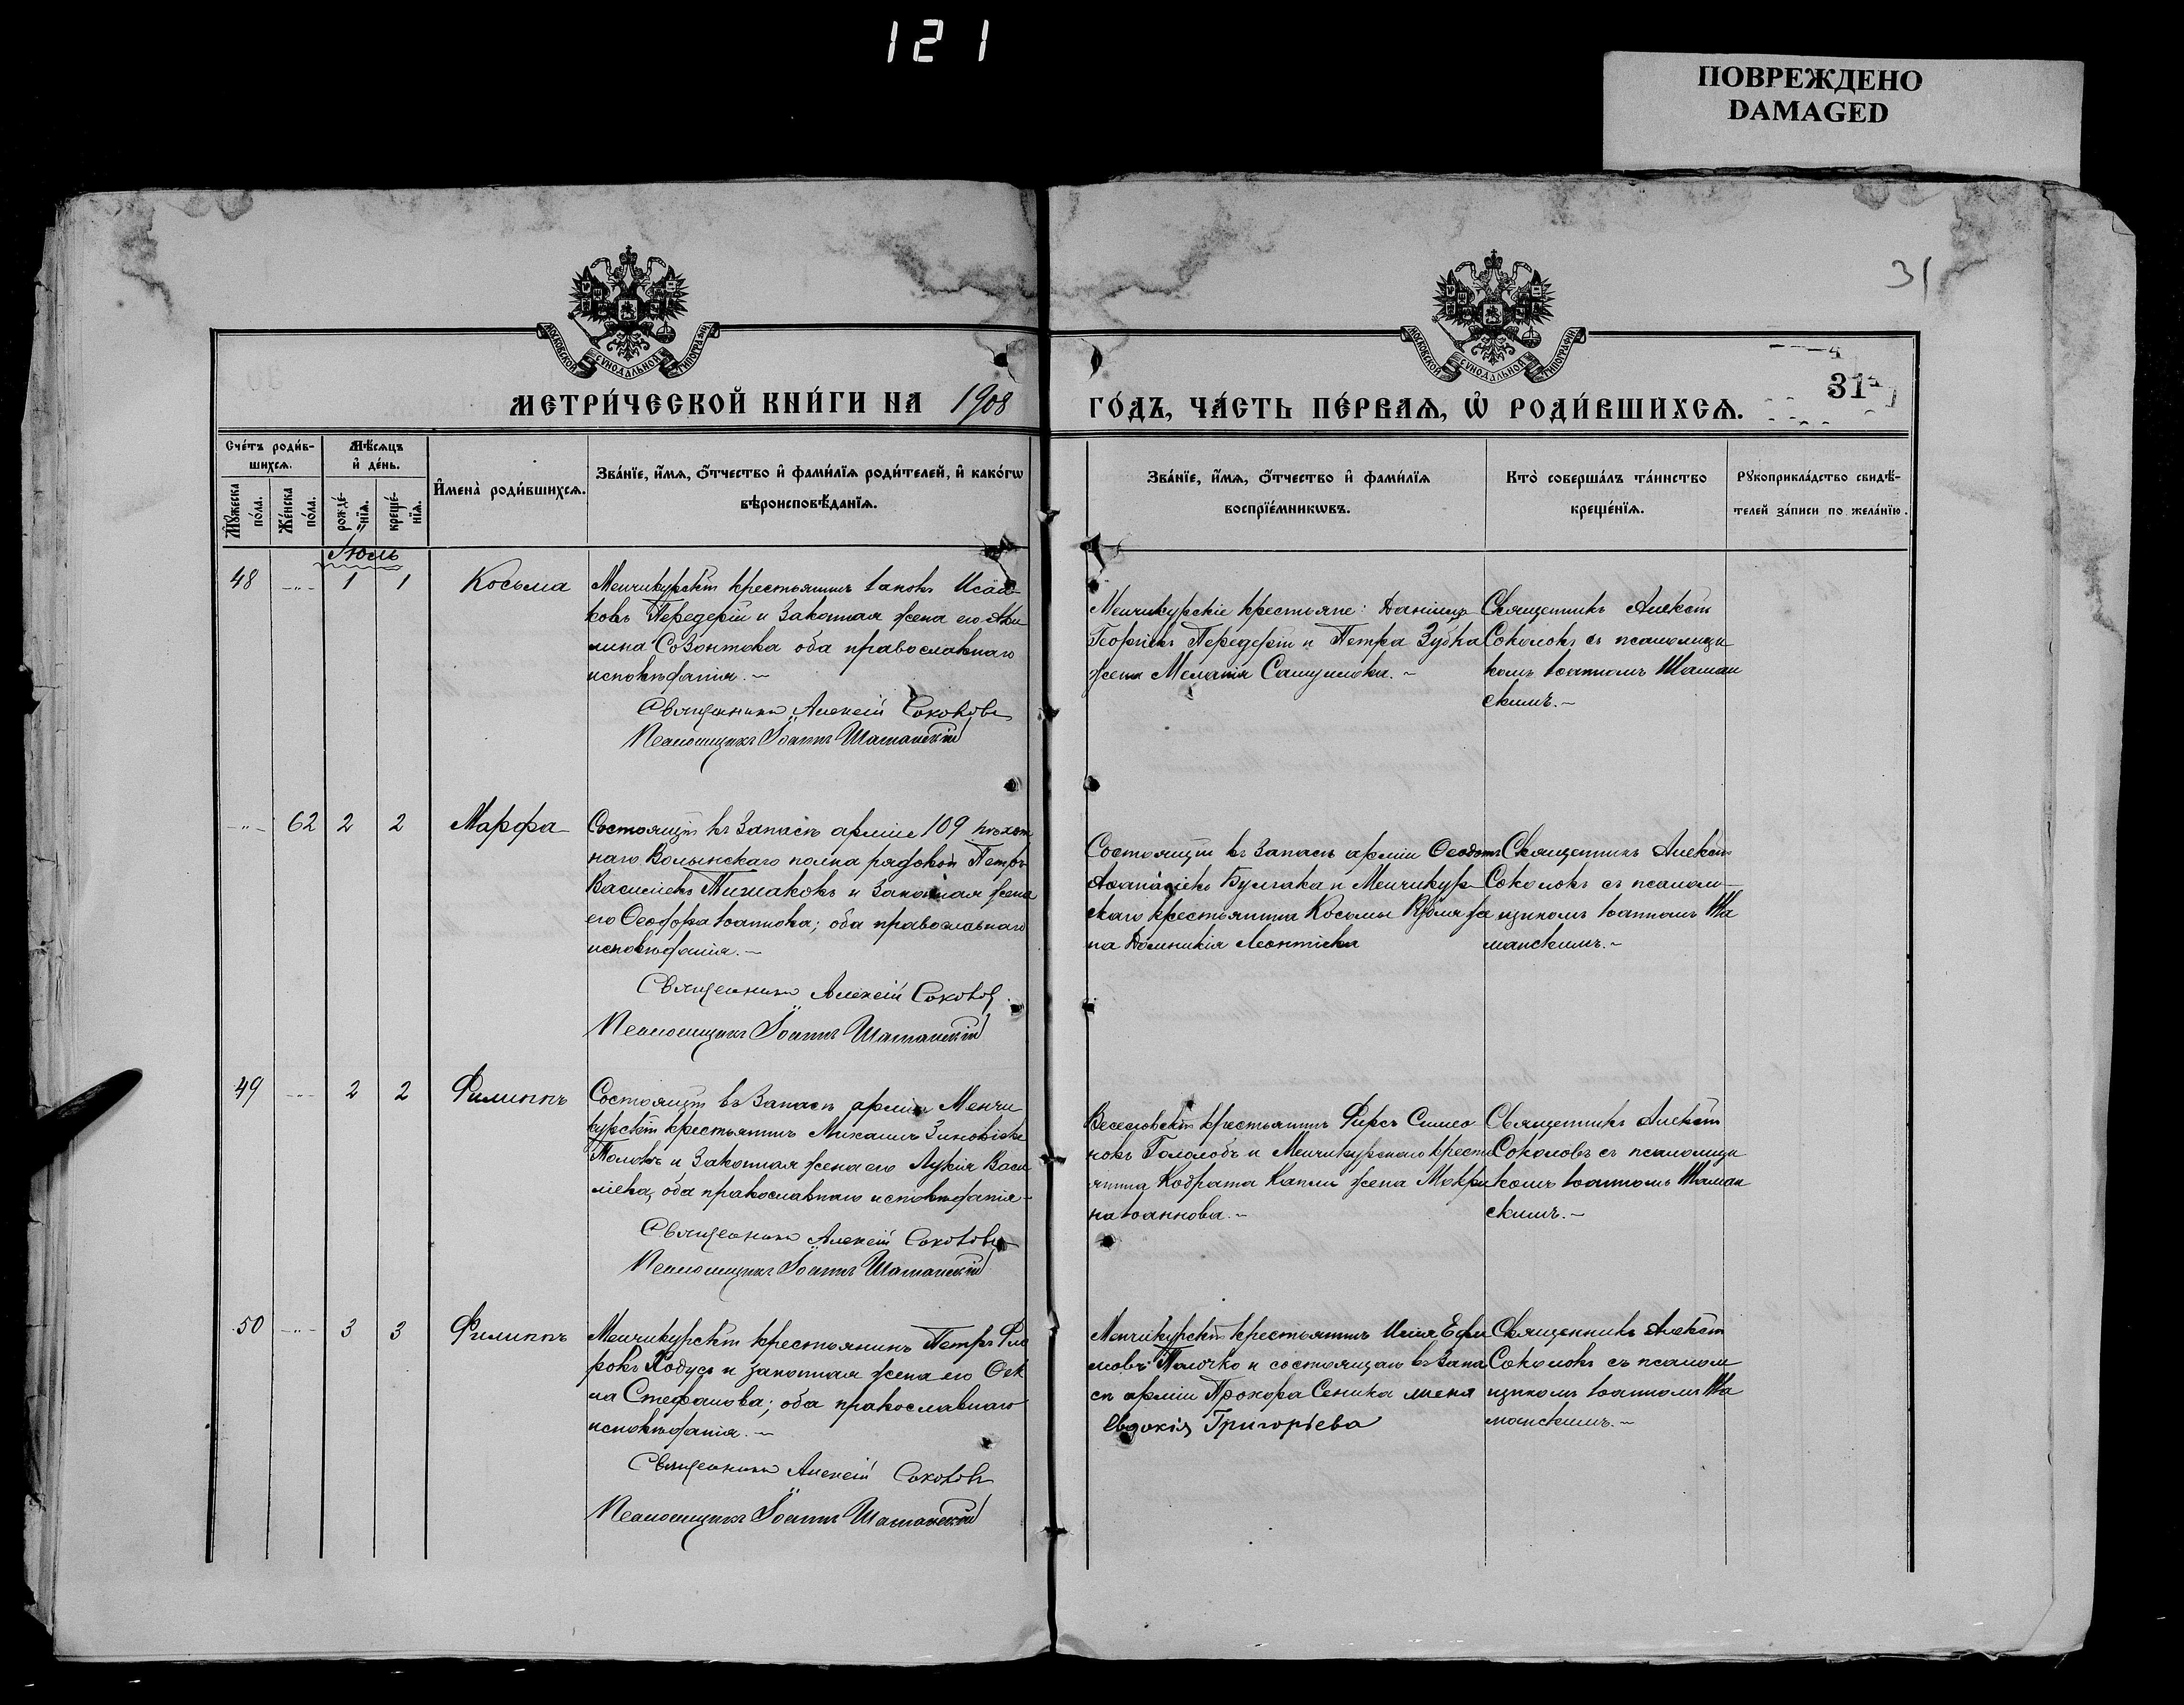 121
ПОВРЕЖДЕНО
DAMAGED
31
МОСКОВСКОЙ СѴНОДАЛЬНОЙ ТИПОГРАФІИ
МОСКОВСКОЙ СѴНОДАЛЬНОЙ ТИПОГРАФІИ
31
МЕТРИ́ЧЕСКОЙ КНИ́ГИ НА 1908
ГО́ДЪ, ЧА́СТЬ ПЕ́РВАѦ, Ѡ҆ РОДИ́ВШИХСѦ.
Сче́тъ роди́в-
шихсѧ.
Мѣ́сѧцъ
и҆ де́нь.
И҆мена̀ роди́вшихсѧ.
Зва́нїе, и҆́мѧ, ѻ҆́тчество и҆ фами́лїѧ роди́телей, и҆ како́гѡ
вѣроисповѣ́данїѧ.
Мꙋ́жеска
по́ла.
Же́нска
по́ла.
рожде́-
нїѧ.
креще́-
нїѧ.
Зва́нїе, и҆́мѧ, ѻ҆́тчество и҆ фами́лїѧ
воспрїе́мникѡвъ.
Кто̀ соверша́лъ та́инство
креще́нїѧ.
Рꙋкоприкла́дство свидѣ́-
телей за́писи по жела́нїю.
Іюль
48 -"- 1 1 Косьма
Менчикурскій крестьянинъ Іаковъ Исаа-
ковъ Передерій и законная жена его Аки
лина Созонтова оба православнаго
исповѣданія.~
Священникъ Алексій Соколовъ
Псаломщикъ Іоаннъ Шаманскій
Менчикурскіе крестьяне: Даніилъ
Георгіевъ Передерій и Петра Зубка
жена Меланія Самуилова.~
Священникъ Алексій
Соколовъ съ псаломщи
комъ Іоанномъ Шаман
скимъ.~
-"- 62 2 2 Марфа
Состоящій въ запасѣ арміи 109 пѣхот
наго Волынскаго полка рядовой Петръ
Василіевъ и законная жена
его Ѳеодора Іоаннова; оба православнаго
исповѣданія.~
Священникъ Алексій Соколов
Псаломщикъ Іоаннъ Шаманскій
Состоящій въ запасѣ арміи Ѳеодотъ
Аѳанасіевъ Булгака и Менчикур-
скаго крестьянина Косьмы же
на Домникія Леонтіева
Священникъ Алексій
Соколовъ съ псалом-
щикомъ Іоанномъ Ша
манскимъ.~
49 -"- 2 2 Филиппъ
Состоящій въ запасѣ арміи Менчи
курскій крестьянинъ Михаилъ Зиновіевъ
и законная жена его Лукія Васи
ліева, оба православнаго исповѣданія-
Священникъ Алексій Соколовъ
Псаломщикъ Іоаннъ Шаманскій
Веселовскій крестьянинъ Фирсъ Симео
новъ Гололобъ и Менчикурскаго кресть
янина Кодрата Капли жена Макри
на Іоаннова.~
Священникъ Алексій
Соколовъ съ псаломщи
комъ Іоанномъ Шаман
скимъ.~
50 -"- 3 3 Филиппъ
Менчикурскій крестьянинъ Петръ Фло
ровъ Ходусъ и законная жена его Ѳек
ла Стефанова; оба православнаго
исповѣданія.~
Священникъ Алексій Соколовъ
Псаломщикъ Іоаннъ Шаманскій
Менчикурскій крестьянинъ Илія Ефи
мовъ Палочко и состоящаго въ запа
сѣ арміи Прохора Сеника жена
Евдокія Григорьева
Священникъ Алексій
Соколовъ съ псалом
щикомъ Іоанномъ Ша
манскимъ.~